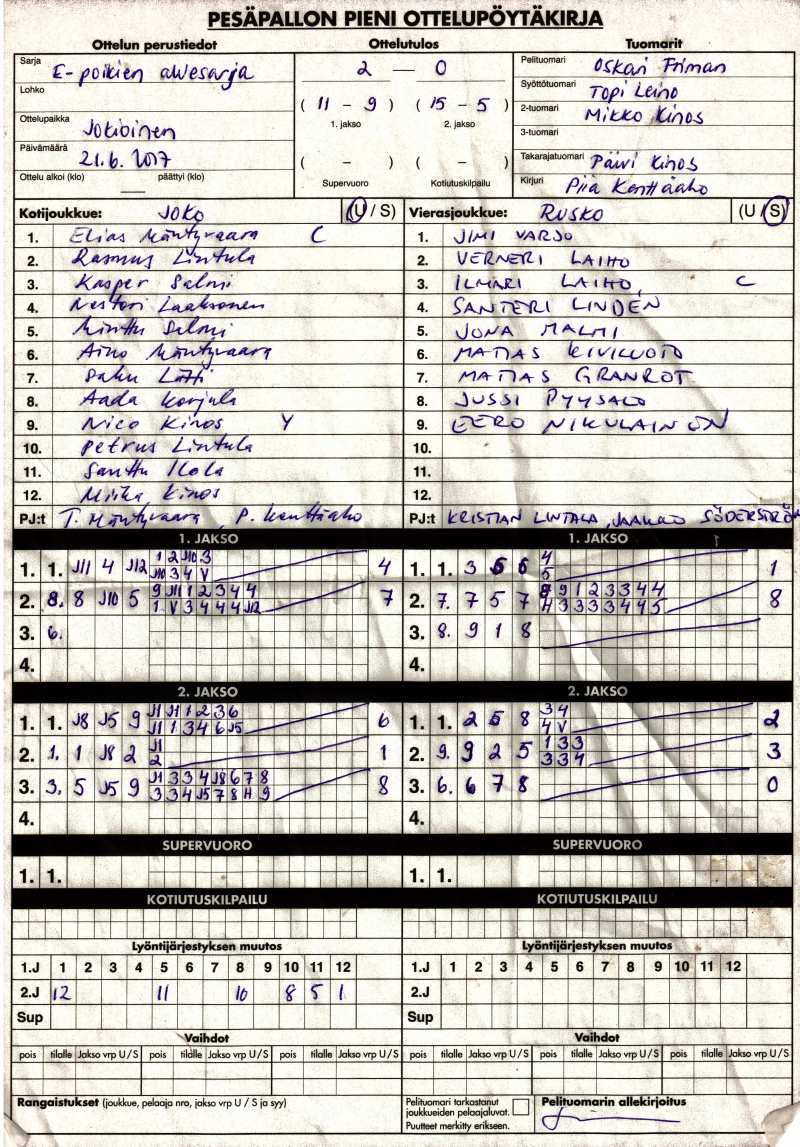 PESÄPALLON PIENI OTTELUPÖYTÄKIRJA
Ottelun perustiedot Ottelutulos Tuomarit
Sarja E-poikien aluesarja
Lohko
Ottelupaikka Jokioinen
Päivämäärä 21.6.2017
Ottelu alkoi (klo) päättyi (klo)
2 — 0
( 11 – 9 ) ( 15 – 5 )
1. jakso 2. jakso
( – ) ( – )
Supervuoro Kotiutuskilpailu
Pelituomari Oskari Friman
Syöttötuomari Topi Leino
2-tuomari Mikko Kinos
3-tuomari
Takarajatuomari Päivi Kinos
Kirjuri Piia Kenttäaho
Kotijoukkue: JOKO (U / S)
1. Elias Mäntyvaara C
2. Rasmus Lintula
3. Kasper Salmi
4. Nestori Laaksonen
5. Minttu Salmi
6. Aino Mäntyvaara
7. Saku Lätti
8. Aada Korjula
9. Nico Kinos Y
10. Petrus Lintula
11. Santtu Ilola
12. Miika Kinos
PJ:t T. Mäntyvaara, P. Kenttäaho
Vierasjoukkue: RUSKO (U / S)
1. JIMI VARJO
2. VERNERI LAIHO
3. ILMARI LAIHO, C
4. SANTERI LINDEN
5. JONA MALMI
6. MATIAS KIVILUOTO
7. MATIAS GRANROT
8. JUSSI PYYSALO
9. EERO NIKULAINON
10.
11.
12.
PJ:t KRISTIAN LINTALA, JAAKKO SÖDERSTRÖM
1. JAKSO
1. 1. J11 4 J12 1 2 J10 3 4
J10 3 4 V
2. 8. 8 J10 5 9 J11 1 2 3 4 4 7
1 V 3 4 4 4 J12
3. 6.
4.
1. JAKSO
1. 1. 3 5 6 4 1
5
2. 7. 7 5 7 8 9 1 2 3 3 4 4 8
4 3 3 3 3 4 4 5
3. 8. 9 1 8
4.
2. JAKSO
1. 1. J8 J5 9 J1 J1 1 2 3 6 6
J1 1 3 4 6 J5
2. 1. 1 J8 2 J1 1
2
3. 3. 5 J5 9 J1 3 3 4 J8 6 7 8 8
3 3 4 J5 7 8 11 9
4.
2. JAKSO
1. 1. 2 5 8 3 4 2
4 V
2. 9. 9 2 5 1 3 3 3
3 3 4
3. 6. 6 7 8 0
4.
SUPERVUORO SUPERVUORO
1. 1. 1. 1.
KOTIUTUSKILPAILU KOTIUTUSKILPAILU
Lyöntijärjestyksen muutos Lyöntijärjestyksen muutos
1.J 1 2 3 4 5 6 7 8 9 10 11 12 1.J 1 2 3 4 5 6 7 8 9 10 11 12
2.J 12 11 10 8 5 1 2.J
Sup Sup
Vaihdot Vaihdot
pois tilalle Jakso vrp U / S pois tilalle Jakso vrp U / S pois tilalle Jakso vrp U / S pois tilalle Jakso vrp U / S pois tilalle Jakso vrp U / S pois tilalle Jakso vrp U / S
Rangaistukset (joukkue, pelaaja nro, jakso vrp U / S ja syy)
Pelituomari tarkastanut
joukkueiden pelaajaluvat.
Puutteet merkitty erikseen.
Pelituomarin allekirjoitus